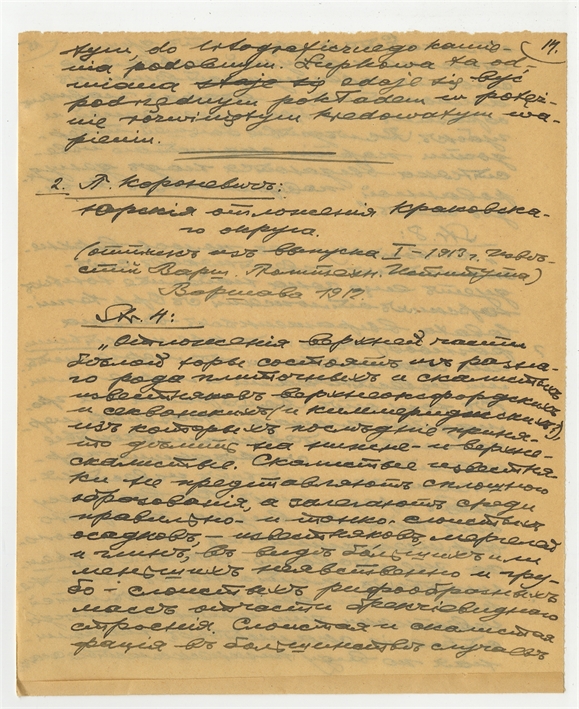 14.
tym, do litograficznego kamie-
nia podobnym. Łupkowa ta od-
miana staje się zdaje się być
podrzędnym pokładem w potęż-
nie rozwiniętym kredowatym wa-
pieniu.
2. П. Короневичъ:
Юрскія отложенія Краковска-
го округа.
(оттискъ изъ выпуска I – 1913 г. Извѣ-
стій Варш. Политехн. Института)
Варшава 191
Str. 4:
„Отложенія верхней части
бѣлой юры состоятъ изъ разна-
го рода плиточныхъ и скалистыхъ
известняковъ верхнеоксфордскихъ
и секванскихъ (и киммериджскихъ?),
изъ которыхъ послѣдніе приня-
то дѣлить на нижне- и верхне-
скалистые. Скалистые известня-
ки не представляютъ сплошного
образованія, а залегаютъ среди
правильно- и тонко-слоистыхъ
осадковъ, – известняковъ, мергелей
и глинъ, въ видѣ большихъ или
меньшихъ неявственно и гру-
бо-слоистыхъ рифообразныхъ
массъ отчасти брекчіевиднаго
строенія. Слоистая и скалистая
фація въ большинствѣ случаевъ